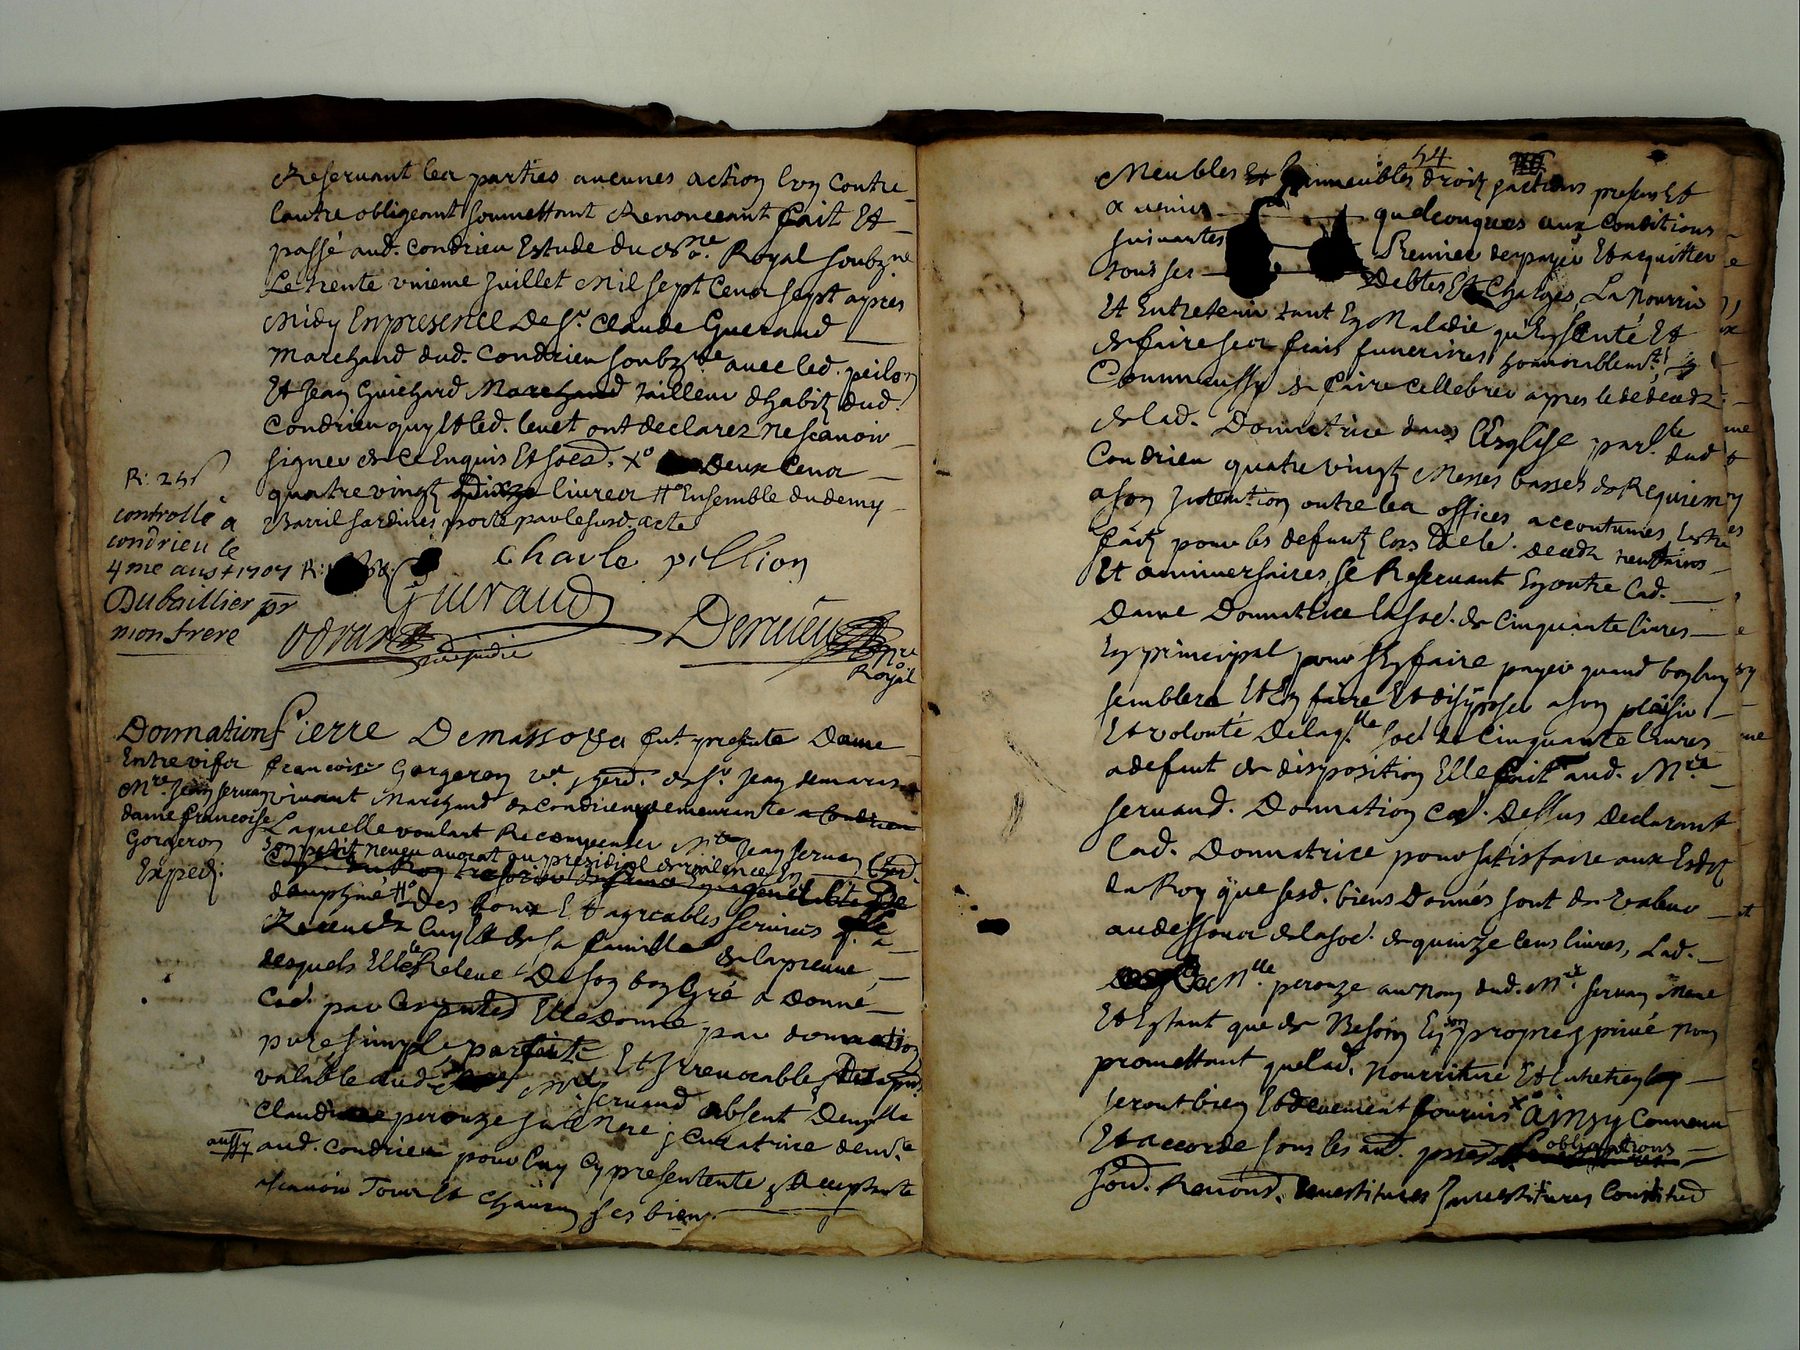 Reservant les parties aucunes action lun contre
lautre obligeant soumettant Renonceant fait Et
passé aud. Condrieu Estude du Royal soubz.ne
Le trente unieme Juillet Mil sept Cens sept apres
Midy En presence De Sr. Claude Gueraud
Marchand dud. Condrieu soubz.ne avec led. peilon
Et Jean Guichard Marchand tailleur dhabitz dud.
Condrieu quy Et led. levet ont declarez ne scavoir
signer de ce Enquis Et soed. Xo Deux Cens
quatre vingtz livres Ho Ensemble du demy
Barril sardines porté par le susd. acte
R: 25s
controllé à
condrieu le
4me aust 1707 R:
Dubaillier pr
mon frere
Charle pillion
Gueraud
Dervieu
Nre
Royal
Donnation
Entre vifs
Mre. Jean servan
dame francoise
Gorgeron
Exped:
Pierre Demassoyer fut presente Dame
francoise Gorgeron ve. de Sr. Jean demaras
vivant Marchand de Condrieu demeurante a Condrieu
Laquelle voulant Recompenser Mre Jean servan
son petit neveu avocat au presidial de valence En
dauphiné Ho Des bons Et agreables services qlle
Rendu luy Et de sa famille
desquels Elle le Releve De son bon Gré a Donné
Cod. par Elle Donne par donnation
pure simple parfaite Et Irrevocable
valable aud. Mre servand absent Demlle
perouze sa Mere Curatrice demte
aussy
aud. Condrieu pour luy Cy presentente acceptante
ascavoir Tous Et Chaicun ses biens
54
Meubles Et Immeubles droitz actions presens Et
a venir quelconques aux Conditions
suivantes Premier de payer Et acquitter
tous ses Debtes Et Charges, La Nourrir
Et Entretenir tant En Maladie qu'En santé Et
de faire ses frais funerires honnorablemt.
Comme aussy de faire Cellebrer apres le dédeceds
de lad. Donnatrice dans l'Esglise parlle dud
Condrieu quatre vingtz Messes basses de Requiem
a son Intention outre les offices accoutumes Estre
faitz pour les defuntz lors De le deceds neufvaines
Et anniversaires, se Reservant En outre lad.
Dame Donnatrice la soe. de Cinquante livres
En principal pour s'En faire payer quand bon luy
semblera Et En faire Et disposer a son plaisir
Et volonté De laqlle soe. de Cinquante livres
a defaut de disposition Elle fait aud. Mre
servand. Donnation Co. Dessus declarant
lad. Donnatrice pour satisfaire aux Esditz
du Roy que sesd. biens Donnés sont de valeur
au dessous de la soe. de quinze Cens livres, Lad.
Mlle. perouze au Nom dud. Mre servan
Et Estant que de Besoin En son propre privé nom
promettant que lad. Nourriture Et Entretien
seront bien Et deuement fournis X ainsy Convenu
Et accorde sous les aud. obligations
Renond. Investitures